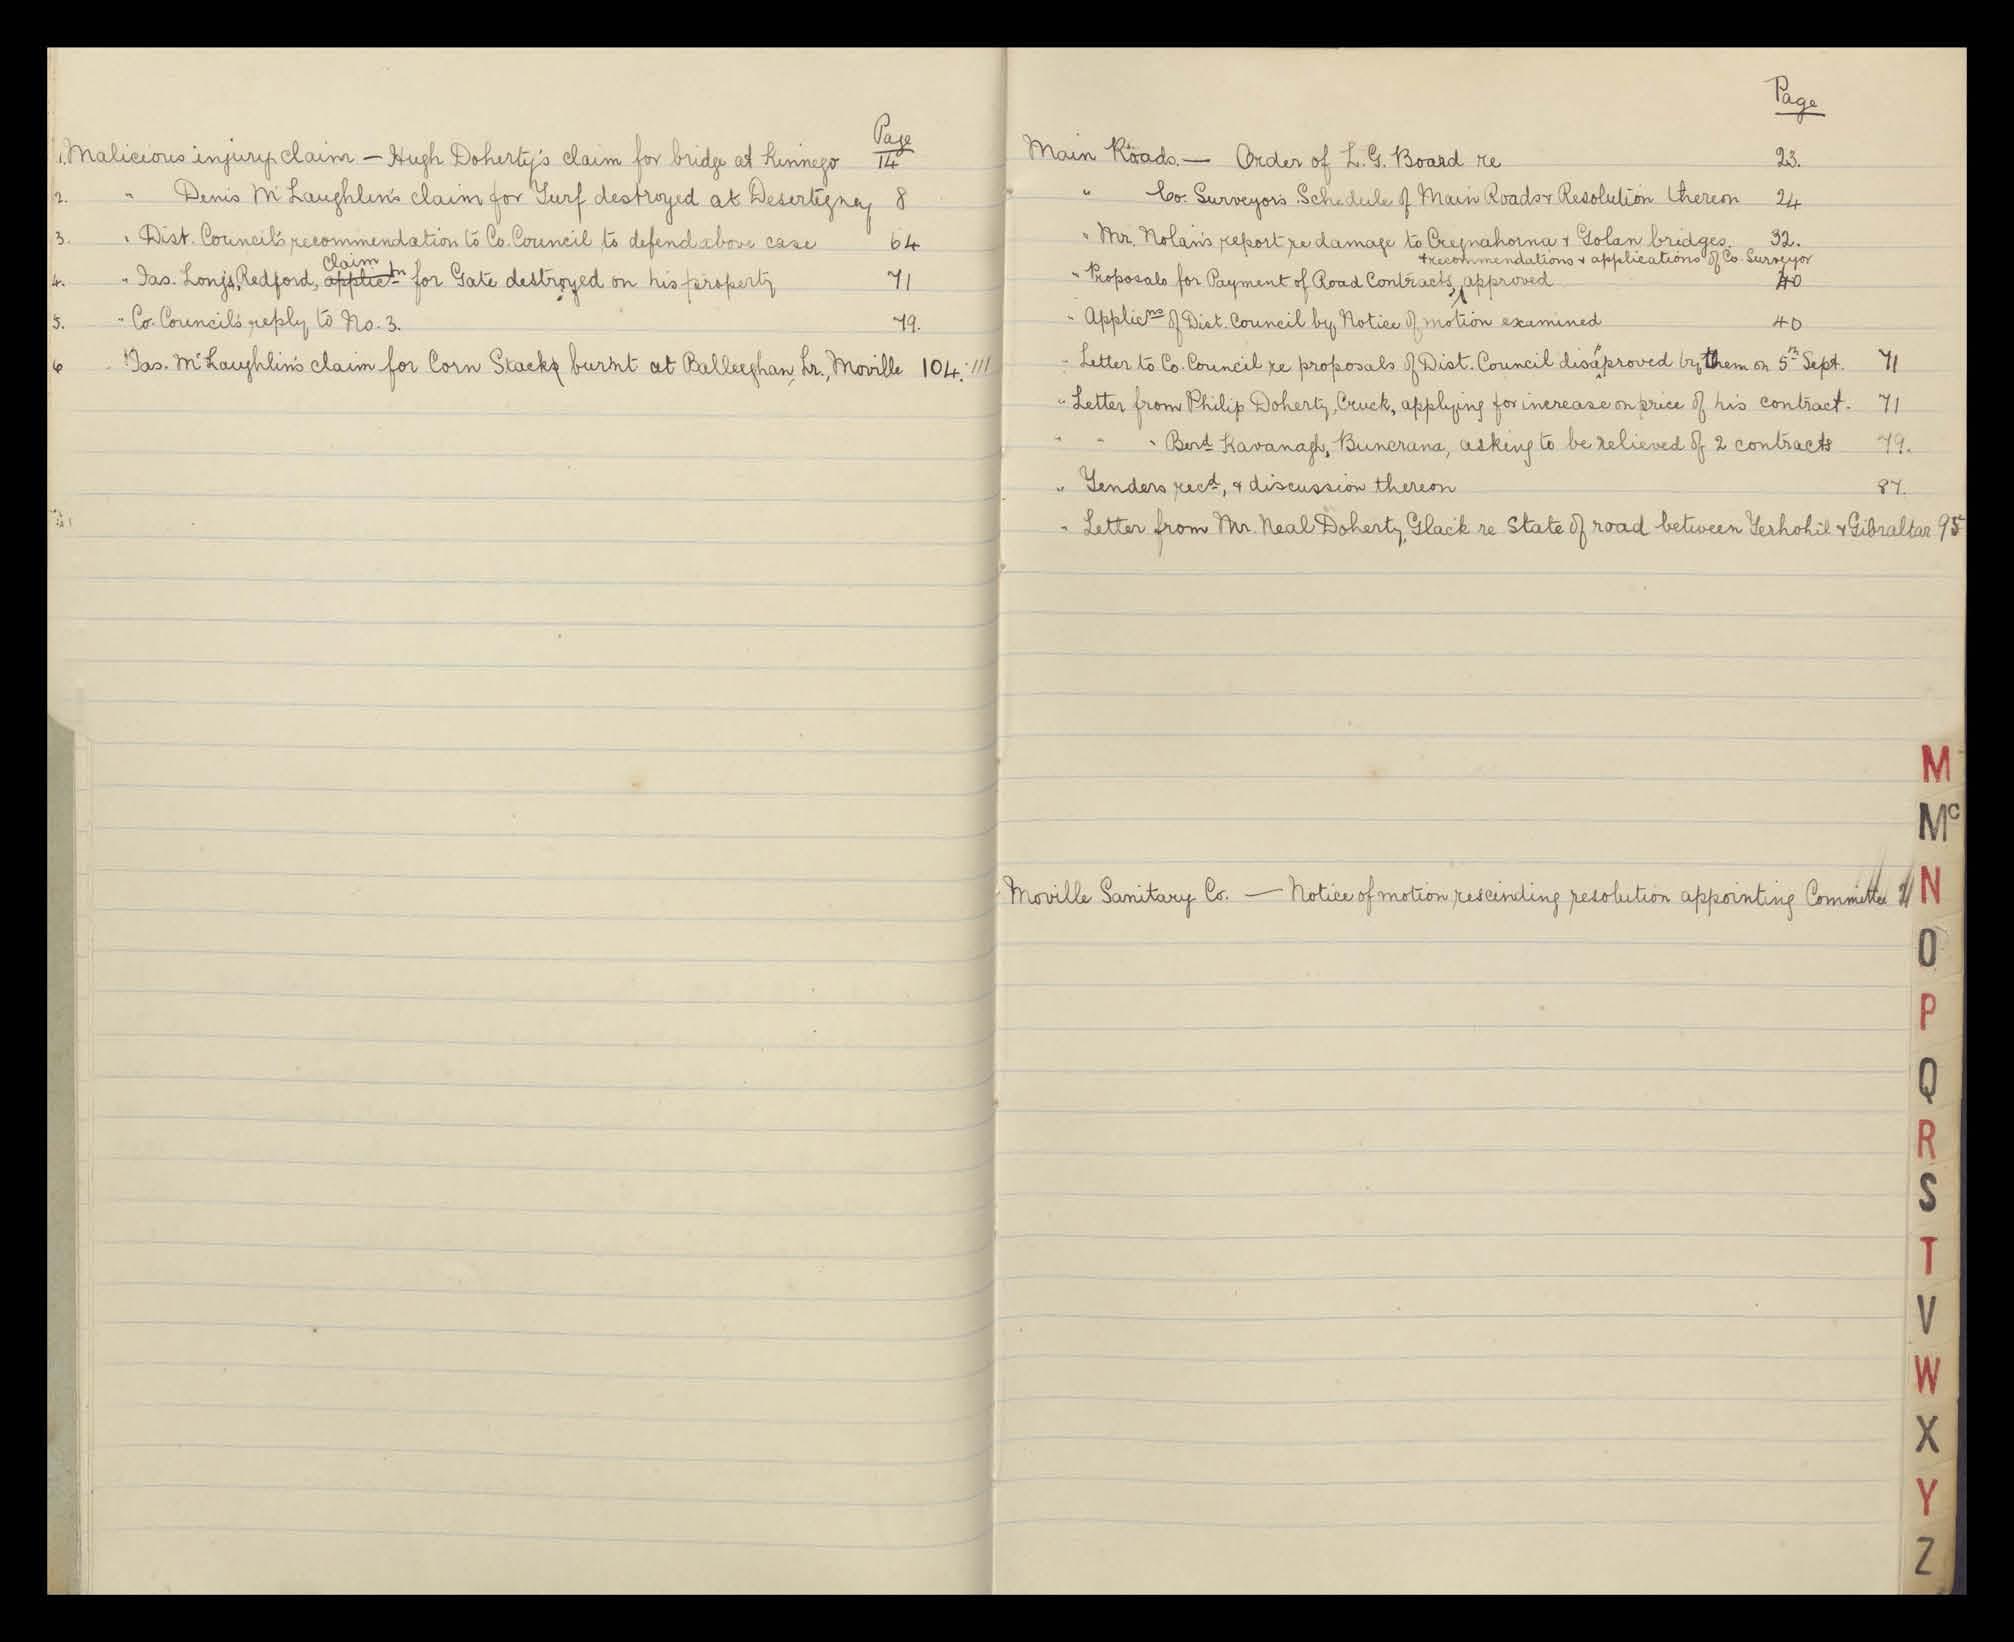 Page
1. Malicious injury claim — Hugh Doherty's claim for bridge at Kinnego 14
2. " Denis McLaughlin's claim for Turf destroyed at Desertegney 8
3. " Dist. Council's recommendation to Co. Council to defend above case 64
claim
4. " Jas. Long's, Redford, applictn for Gate destroyed on his property 71
5. " Co. Council's reply to No. 3. 79.
6 " Jas. McLaughlin's claim for Corn Stacks burnt at Balleeghan, Lr., Moville 104. 111
Page
Main Roads. — Order of L. G. Board re 23.
" Co. Surveyor's Schedule of Main Roads & Resolution thereon 24
" Mr. Nolan's report re damage to Cregnahorna & Golan bridges. 32.
& recommendations & applications of Co. Surveyor
" Proposals for Payment of Road Contracts, approved 40
" Applicns of Dist. Council by Notice of motion examined 40
" Letter to Co. Council re proposals of Dist. Council disapproved by them on 5th Sept. 71
" Letter from Philip Doherty, Cruck, applying for increase on price of his contract. 71
" " " Bernd Kavanagh, Buncrana, asking to be relieved of 2 contracts 79.
" Tenders recd, & discussion thereon 87.
" Letter from Mr. Neal Doherty, Glack re State of road between Terhohil & Gibraltar 95
Moville Sanitary Co. — Notice of motion rescinding resolution appointing Committee
M
Mc
N
O
P
Q
R
S
T
V
W
X
Y
Z